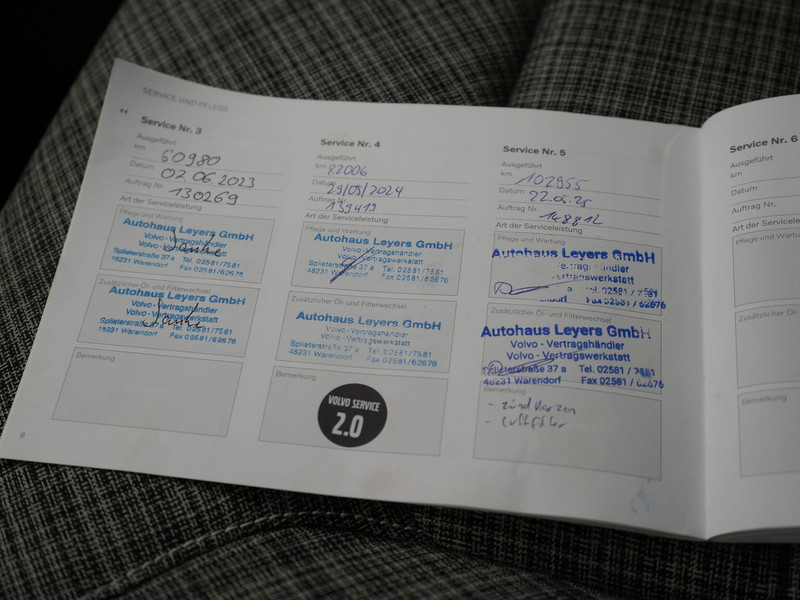 SERVICE UND PFLEGE
Service Nr. 3
Ausgeführt
km 60980
Datum 02.06.2023
Auftrag Nr. 130269
Art der Serviceleistung
Pflege und Wartung
Autohaus Leyers GmbH
Volvo-Vertragshändler
Volvo-Vertragswerkstatt
Splieterstraße 37 a Tel. 02581/7581
48231 Warendorf Fax 02581/62676
Zusätzlicher Öl- und Filterwechsel
Autohaus Leyers GmbH
Volvo-Vertragshändler
Volvo-Vertragswerkstatt
Splieterstraße 37 a Tel. 02581/7581
48231 Warendorf Fax 02581/62676
Bemerkung
8
Service Nr. 4
Ausgeführt
km 82006
Datum 29/05/2024
Auftrag Nr. 139419
Art der Serviceleistung
Pflege und Wartung
Autohaus Leyers GmbH
Volvo-Vertragshändler
Volvo-Vertragswerkstatt
Splieterstraße 37 a Tel. 02581/7581
48231 Warendorf Fax 02581/62676
Zusätzlicher Öl- und Filterwechsel
Autohaus Leyers GmbH
Volvo-Vertragshändler
Volvo-Vertragswerkstatt
Splieterstraße 37 a Tel. 02581/7581
48231 Warendorf Fax 02581/62676
Bemerkung
VOLVO SERVICE
2.0
Service Nr. 5
Ausgeführt
km 102955
Datum 22.05.25
Auftrag Nr. 148812
Art der Serviceleistung
Pflege und Wartung
Autohaus Leyers GmbH
Vertragshändler
Vertragswerkstatt
Tel. 02581 / 7581
Fax 02581 / 62676
Zusätzlicher Öl- und Filterwechsel
Autohaus Leyers GmbH
Volvo - Vertragshändler
Volvo - Vertragswerkstatt
Splieterstraße 37 a Tel. 02581 / 7581
48231 Warendorf Fax 02581 / 62676
Bemerkung
- Zündkerzen
- Luftfilter
Service Nr. 6
Ausgeführt
km
Datum
Auftrag Nr.
Art der Serviceleistung
Pflege und Wartung
Zusätzlicher Öl-
Bemerkung